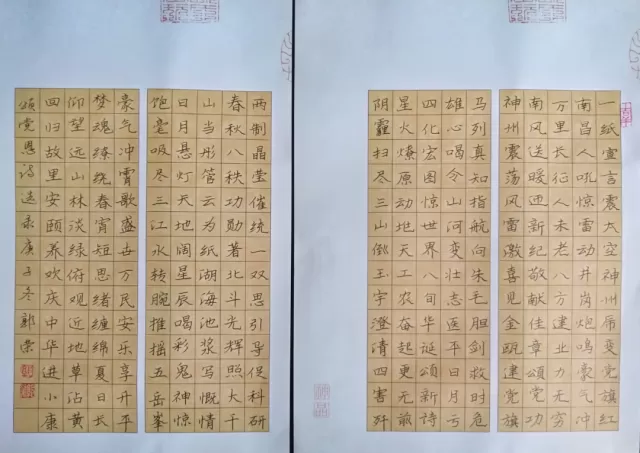 一纸宣言震太空神州变党旗红
南昌人吼惊雷动井岗炮鸣豪气冲
万里长征人未老八方建业力无穷
南风送暖迎新纪敬献佳章颂党功
神州震荡风雷激喜见金瓯建党旗
马列真知指航向朱毛胆剑救时危
雄心喝令山河变壮志医平日月亏
四化宏图惊世界八旬华诞颂新诗
星火燎原动地天工农奋起更无
阴霾扫尽三山倒玉宇澄清四害歼
两制晶莹催统一双思引导促科研
春秋八秩功勋著北斗光辉照大千
山当彤管云为纸湖海池浆写慨情
日月悬灯天地阔星辰喝彩鬼神惊
饱毫吸尽三江水转腕推摇五岳峯
豪气冲霄歌盛世万民安乐享升平
梦魂缭绕春宵短思绪缠绵夏日长
仰望远山林淡绿俯观近地草沾黄
四归故里安颐养欢庆中华进小康
颂党恩诗选录庚子冬郭荣